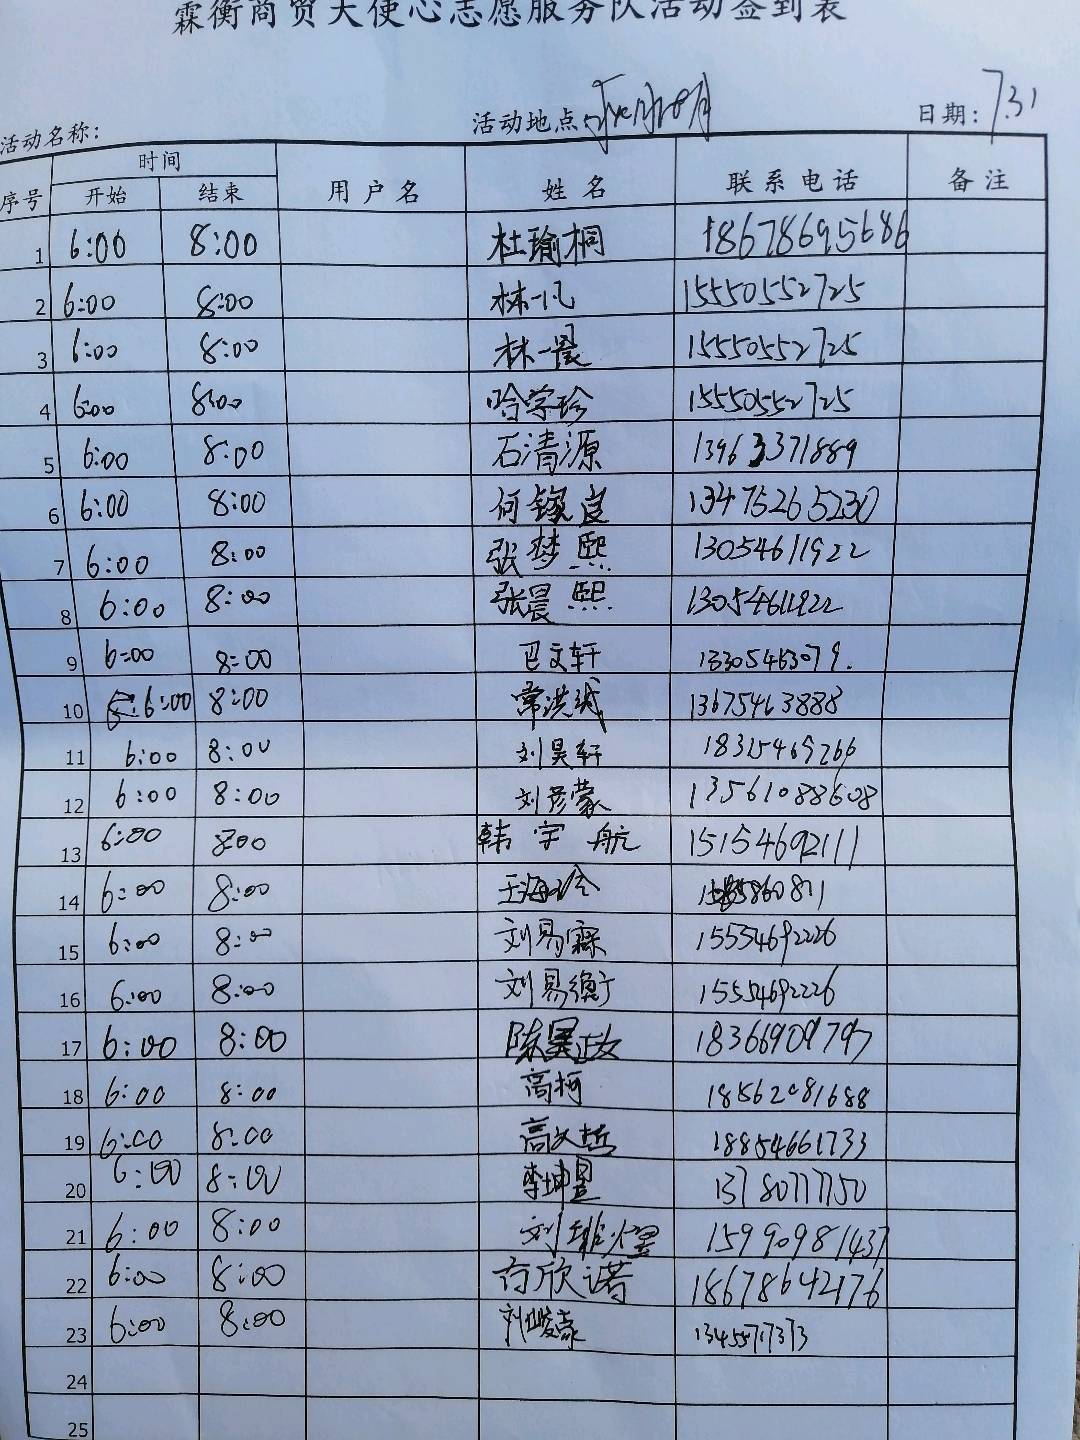 霖衡商贸天使心志愿服务队活动签到表
活动名称: 活动地点 日期: 7.31
序号 时间 用户名 姓名 联系电话 备注
开始 结束
1 6:00 8:00 杜瑜桐 18678695686
2 6:00 8:00 林一凡 15550552725
3 6:00 8:00 林一晨 15550552725
4 6:00 8:00 哈学珍 15550552725
5 6:00 8:00 石清源 13963371889
6 6:00 8:00 何镓良 13475265230
7 6:00 8:00 张梦熙 13054611922
8 6:00 8:00 张晨熙 13054611922
9 6:00 8:00 巴文轩 13305463079.
10 6:00 8:00 常洪诚 13675463888
11 6:00 8:00 刘昊轩 18325469266
12 6:00 8:00 刘彦蒙 13561088608
13 6:00 8:00 韩宇航 15154692111
14 6:00 8:00
15 6:00 8:00 刘易霖 15554692226
16 6:00 8:00 刘易衡 15554692226
17 6:00 8:00 陈昊政 18366909797
18 6:00 8:00 高柯 18562081688
19 6:00 8:00 高文哲 18854661733
20 6:00 8:00 李坤昱 13780777750
21 6:00 8:00 刘 15990981437
22 6:00 8:00 欣诺 18678642176
23 6:00 8:00 刘峻豪 13455717373
24
25